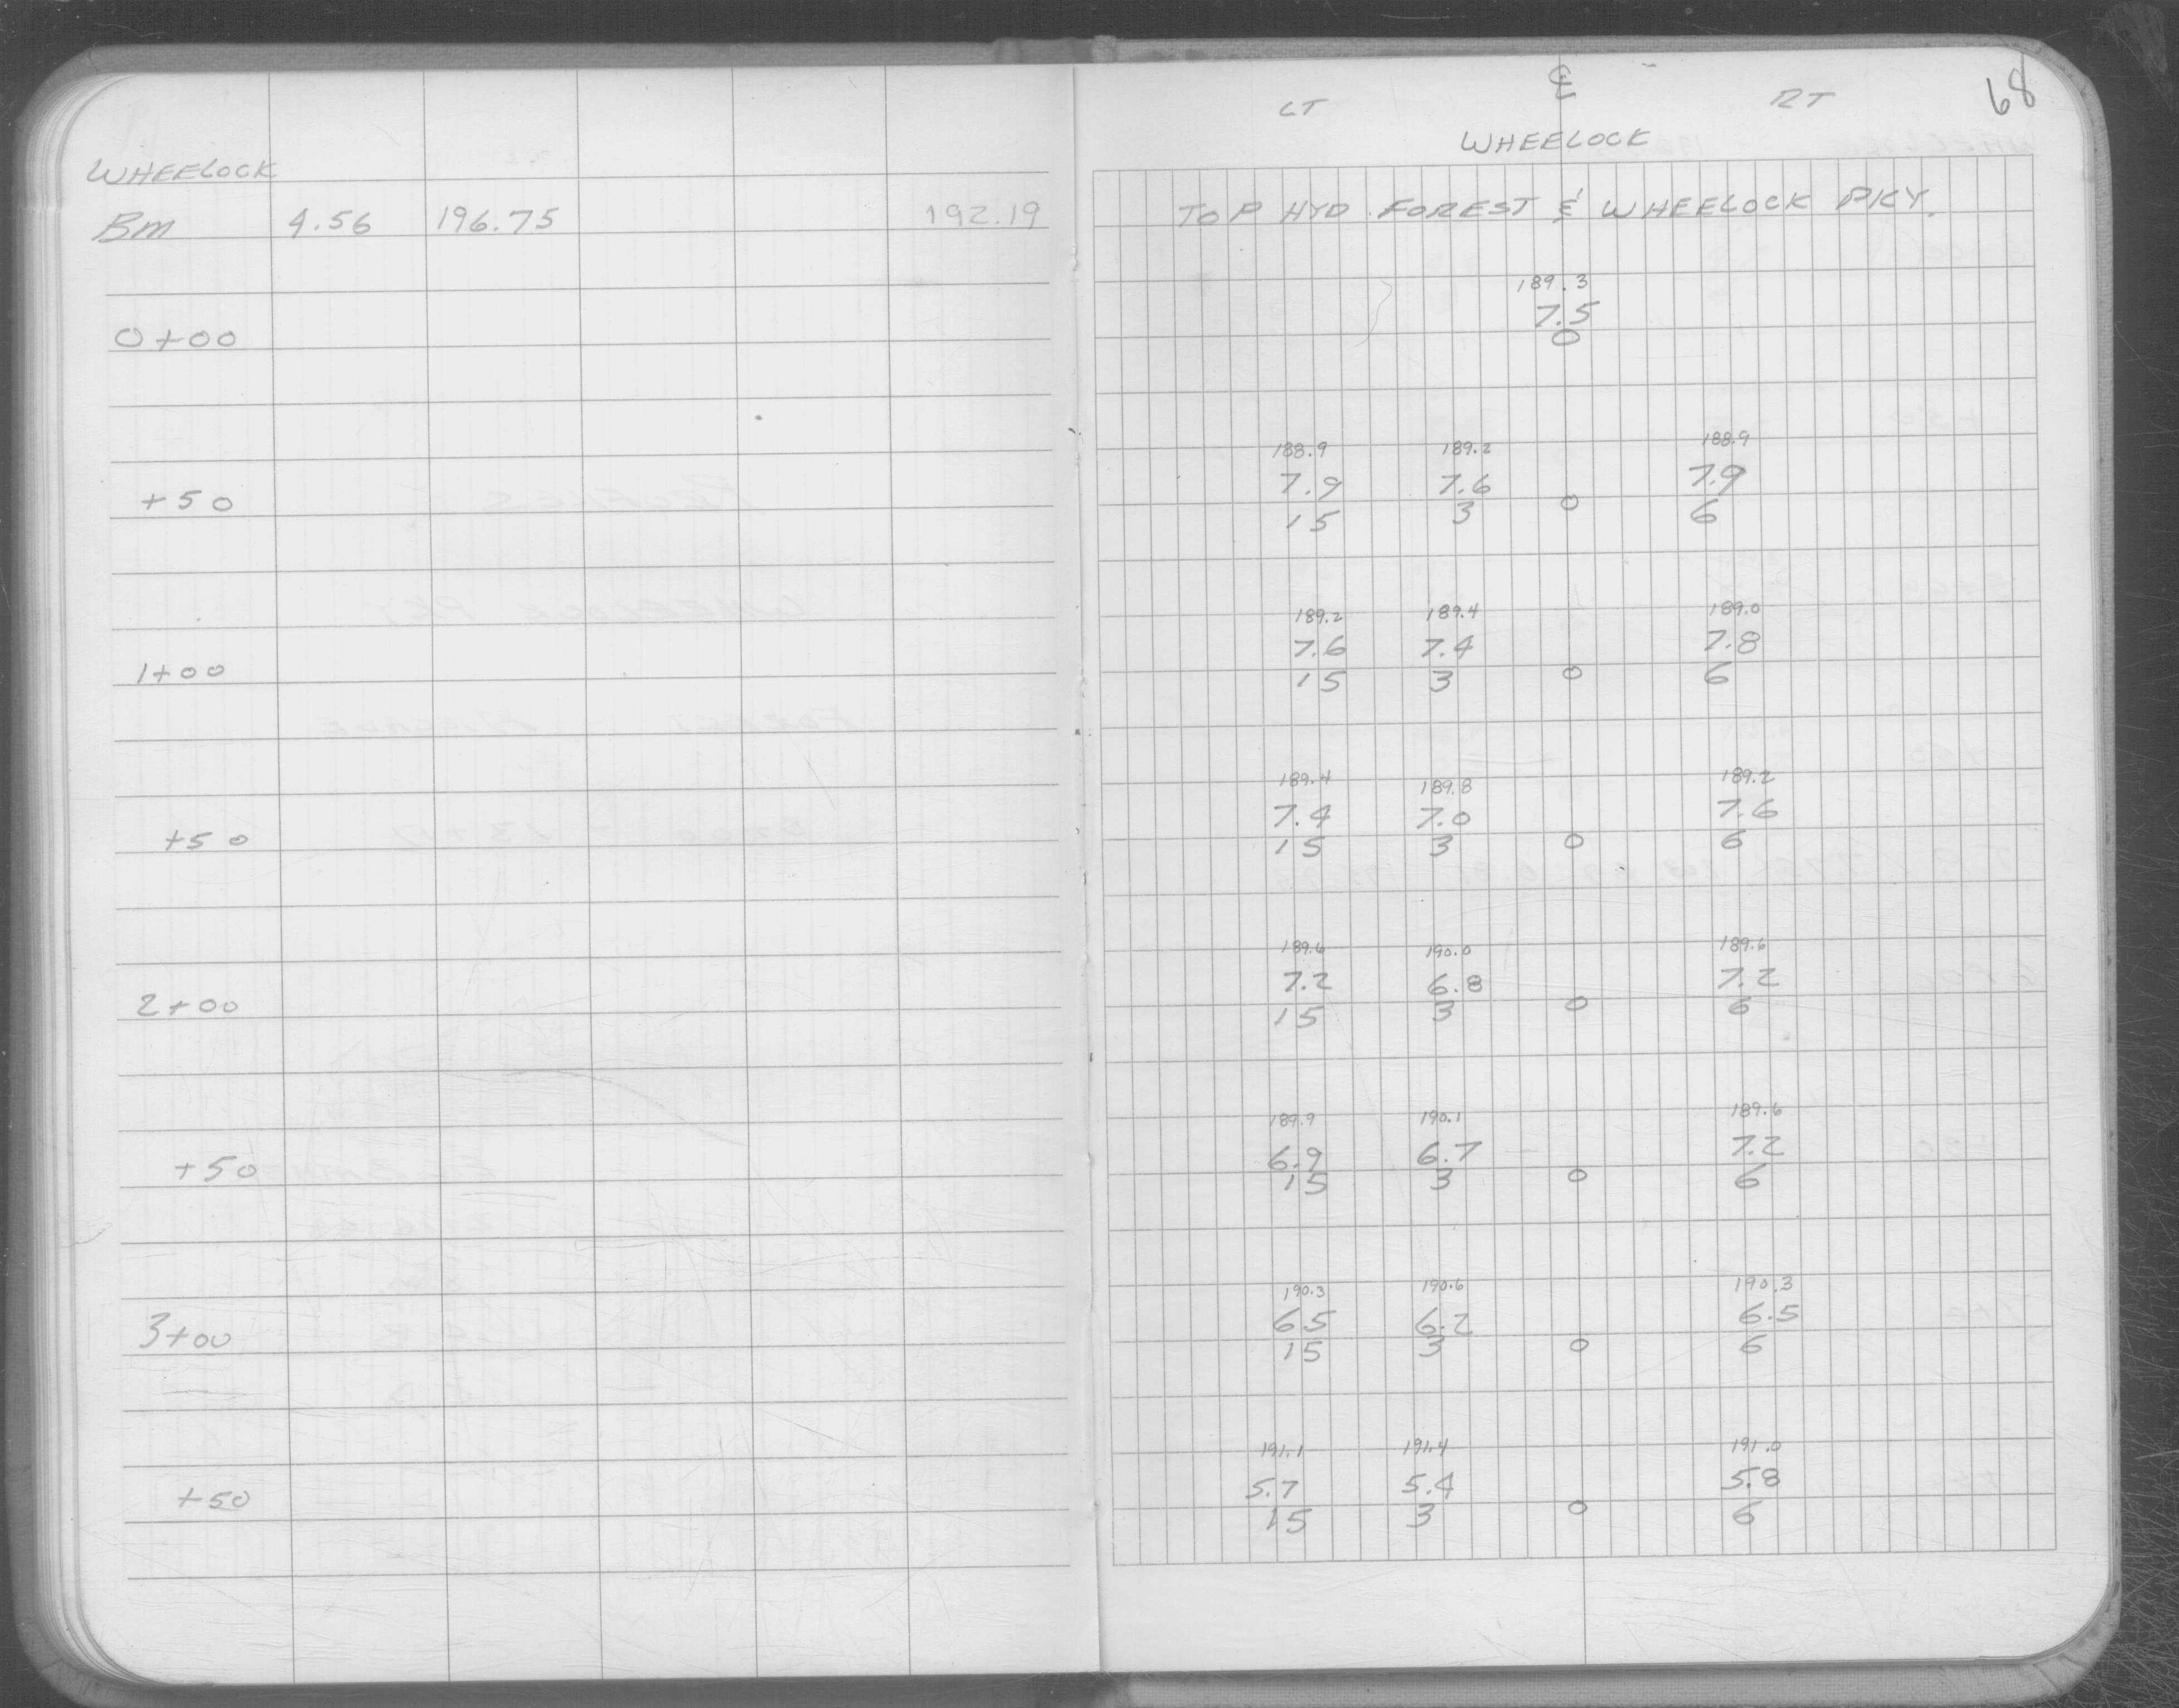 68
LT ℄ RT
WHEELOCK
WHEELOCK
BM 4.56 196.75 192.19 TOP HYD. FOREST & WHEELOCK PKY.
189.3
7.5
0+00 0
188.9 189.2 188.9
7.9 7.6 7.9
+50 15 3 0 6
189.2 189.4 189.0
7.6 7.4 7.8
1+00 15 3 0 6
189.4 189.8 189.2
7.4 7.0 7.6
+50 15 3 0 6
189.6 190.0 189.6
7.2 6.8 7.2
2+00 15 3 0 6
189.9 190.1 189.6
6.9 6.7 7.2
+50 15 3 0 6
190.3 190.6 190.3
6.5 6.2 6.5
3+00 15 3 0 6
191.1 191.4 191.0
5.7 5.4 5.8
+50 15 3 0 6